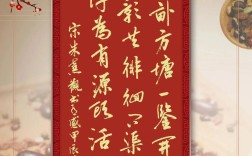 畝方塘一鑒開
影共徘徊问渠
為有源頭活
宋朱熹觀書有感甲辰